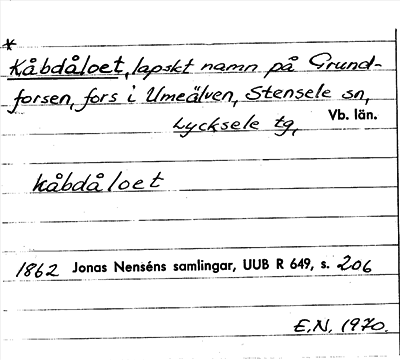 *
Kåbdåloet, lapskt namn på Grund-
forsen, fors i Umeälven, Stensele sn,
Lycksele tg, Vb. län.
kåbdåloet
1862 Jonas Nenséns samlingar, UUB R 649, s. 206
E.N. 1970.